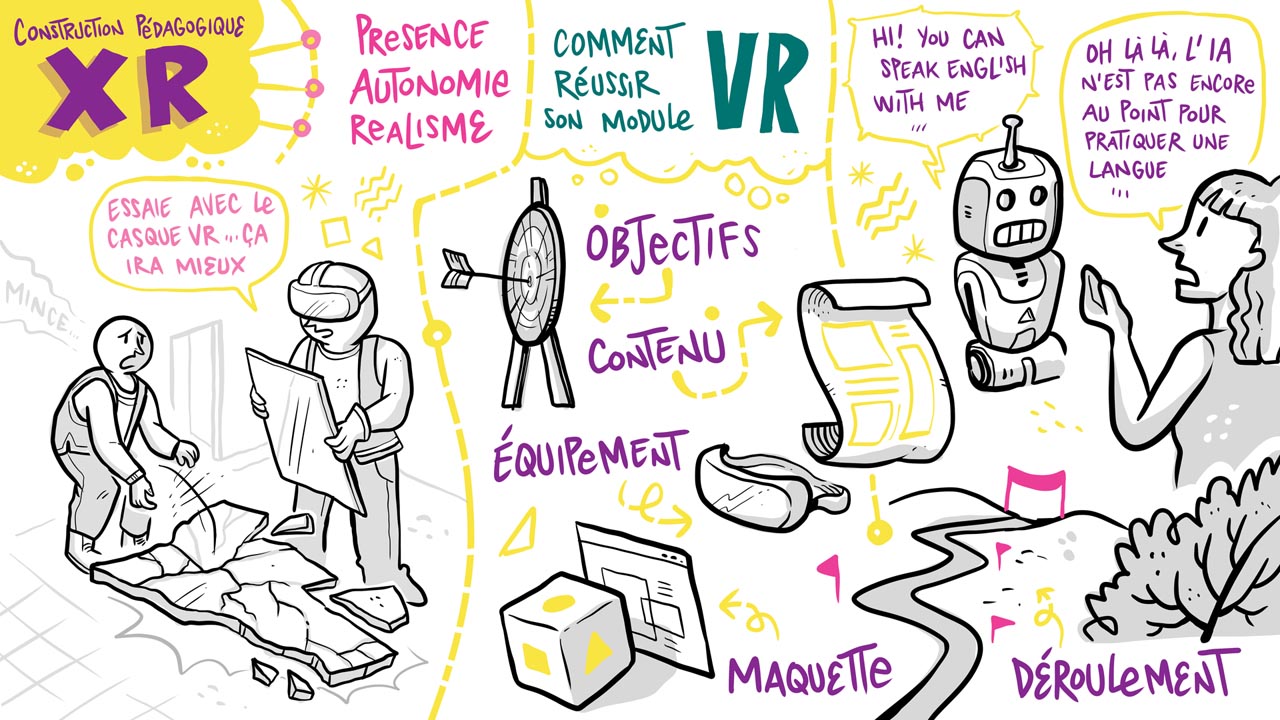 CONSTRUCTION PÉDAGOGIQUE
XR
PRESENCE
AUTONOMIE
REALISME
COMMENT
RÉUSSIR
SON MODULE
VR
HI! YOU CAN
SPEAK ENGLISH
WITH ME
...
OH LÀ LÀ, L'IA
N'EST PAS ENCORE
AU POINT POUR
PRATIQUER UNE
LANGUE
...
ESSAIE AVEC LE
CASQUE VR... ÇA
IRA MIEUX
MINCE...
OBJECTIFS
CONTENU
ÉQUIPEMENT
MAQUETTE
DÉROULEMENT